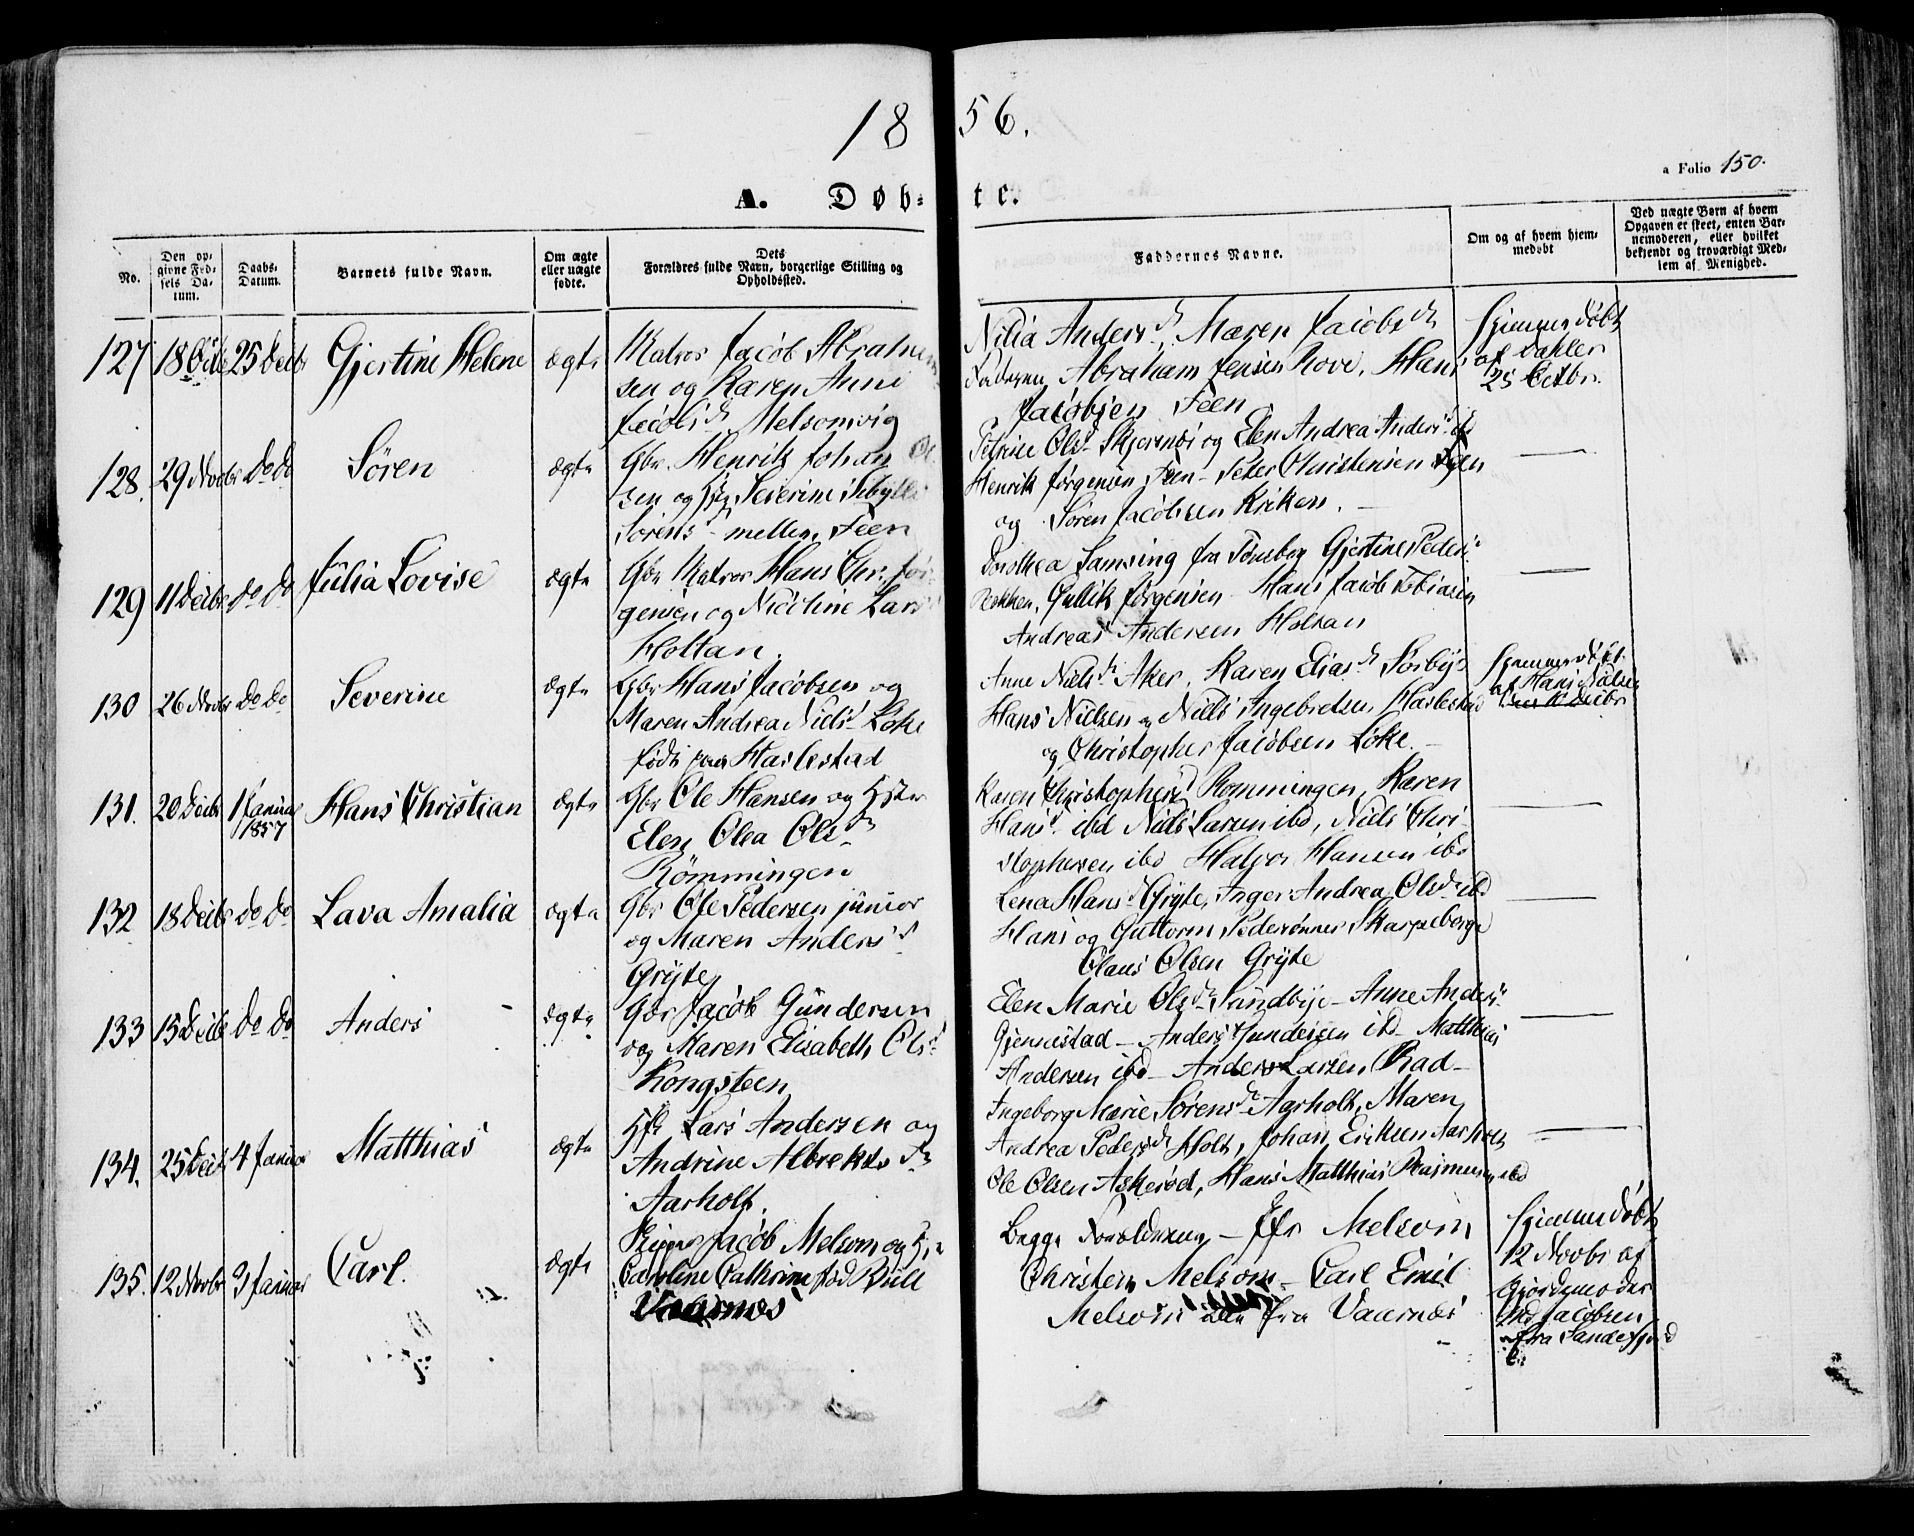 1856.
a Folio 150.
A. Døbte.
No.
Den opgivne Fødsels Datum.
Daabs-Datum.
Barnets fulde Navn.
Om ægte eller uægte fødte.
Dets Forældres fulde Navn, borgerlige Stilling og Opholdssted.
Faddernes Navne.
Om og af hvem hjemmedøbt
Ved uægte Børn af hvem Opgaven er skeet, enten Barnemoderen, eller hvilket bekjendt og troværdigt Medlem af Menighed.
127 18 Octb 25 Decbr Gjertine Helene ægte
Matros Jacob Abraham
sen og Karen Anne
Jacobsd. Melsomvig
Anders d. Maren Jacobs d.
Faderen Abraham Jensen Hove, Hans
Jacobsen Feen
Hjemmedøbt
af Dahler
25 Octbr.
128. 29 Novbr Do Do Søren ægte
Gbr. Henrik Johan Ol
sen og Hstr Severine Sibylle
Sørensd. mellem Feen
Petrine Olsd. Skjersnes og Elen Andrea Andersd. ibd
Henrik Jørgensen Feen - Peter Christensen Feen
og Søren Jacobsen Kriken.
129 11 Decbr do do Julia Lovise ægte
Gbr Matros Hans Chr. Jør
gensen og Nicoline Lars
Holtan.
Dorthea Samsing fra Tønsberg Gjertine Peders
Bekken, Gullik Jørgensen Hans Jacob Tobiasen
Andreas Andersen Holtan
130 26 Novbr Do Do Severine Ægte
Gbr Hans Jacobsen og
Maren Andrea Nielsd. Løke
født paa Haslestad
Anne Nielsd. Aker. Karen Elias d. Sørbye
Hans Nielsen og Niels Ingebretsen Haslestad
og Christopher Jacobsen Løke.
Hjemmedøbt
af Hans Nielsen
131. 20 Decbr 1 Januar 1857 Hans Christian Ægte
Gbr Ole Hansen og Hstr
Elen Olea Ols d.
Rømmingen
Karen Christophersd Rommingen, Karen
Hansd. ibd Niels Larsen ibd, Niels Chri
stophersen ibd Halvor Hansen ibd
132 18 Decbr do do Lava Amalia ægte
Gbr Ole Pedersen junior
og Maren Andersd.
Gryte
Lena Hansd. Gryte, Inger Andrea Olsd. ibd
Hans og Guttorm Pedersønner Skarpeberge
Claus Olsen Gryte
133 15 Decbr do do Anders ægte
Gbr Jacob Gundersen
og Maren Elisabeth Olsd.
Kongsteen
Elen Marie Olsd. Sundbye - Anne Anders.
Gjennestad - Anders Gundersen ibd - Matthias
Andersen ibd - Anders Larsen Rad -
134. 25 Decbr 4 Januar Matthias ægte
Hfd Lars Andersen og
Andrine Albrekts d.
Aarholt.
Ingeborg Marie Sørensd. Aarholt, Maren
Andrea Peders d. Holt, Johan Eriksen Aarholt
Ole Olsen Askerød, Hans Matthias Rasmussen ibd
135. 12 Novbr 3 Januar Carl. ægte
Skipper Jacob Melsom og
Caroline Cathrine fød Bull
Vaarnæs
Begge Forældrene - Melsom
Christen Melsom - Carl Emil
Melsom alle fra Vaarnæs
Hjemmedøbt
12 Novbr af
Gjordemoder
Jacobsen
fra Sandefjord